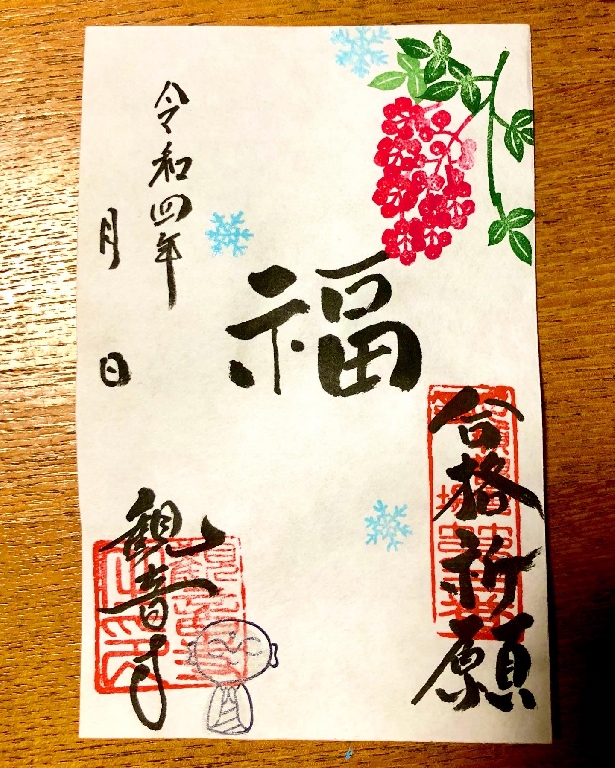 合格祈願
福
令和四年
月 日
観音寺